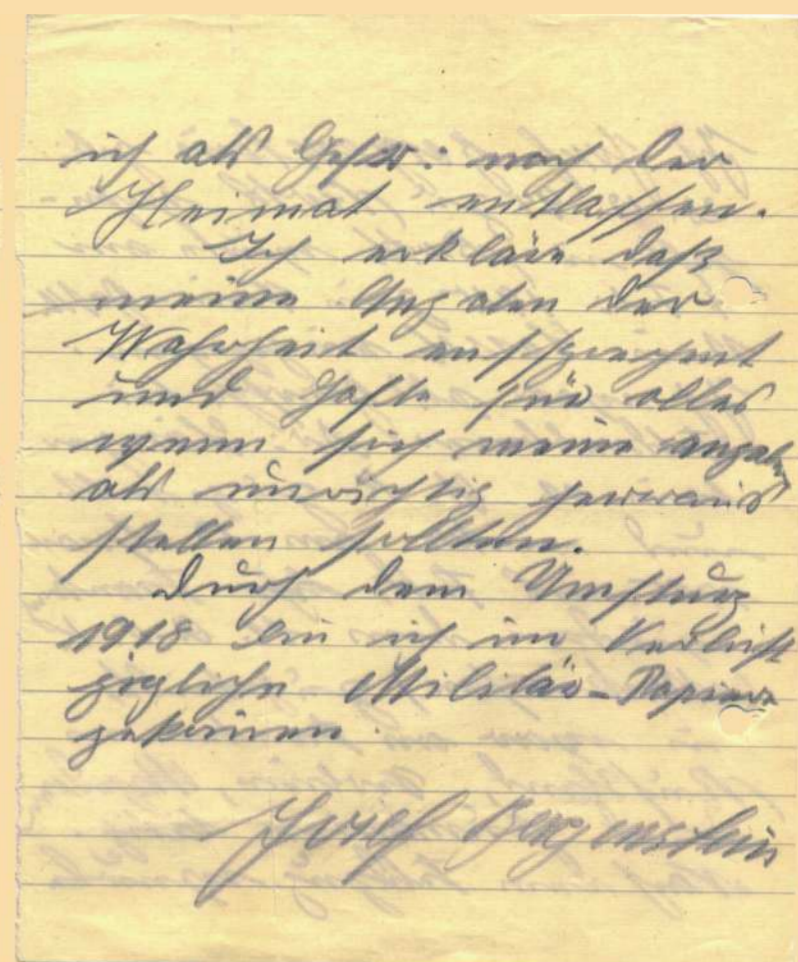 ich als Gefr: nach der
Heimat entlassen.
Ich erkläre daß
meine Angaben der
Wahrheit entsprechent
und hafte für alles
wenn sich meine angaben
als unrichtig herraus
stellen sollten.
Durch dem Umsturz
1918 bin ich im Verlust
jegliche Militär-Papiere
gekommen.
Josef Bergenstein